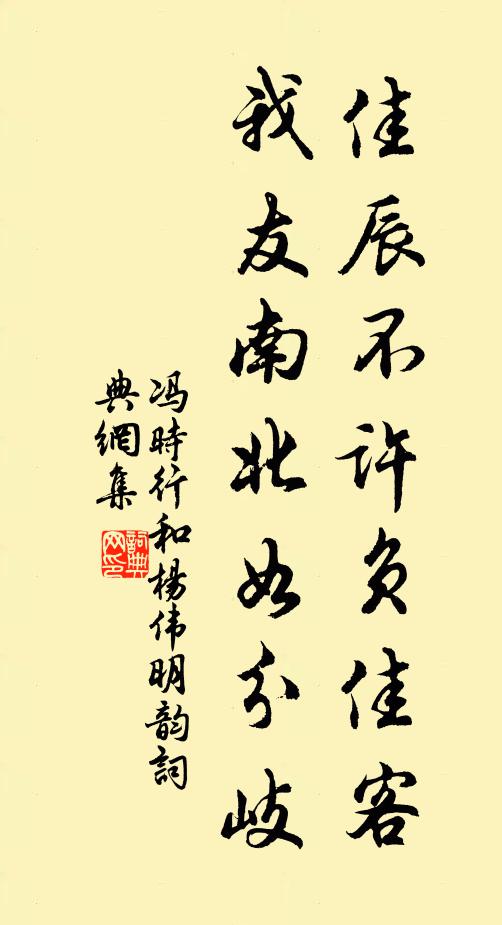 佳辰不许负佳客
我友南北如分岐
冯時行和楊伟明韵詞
典網集
詞典
网印